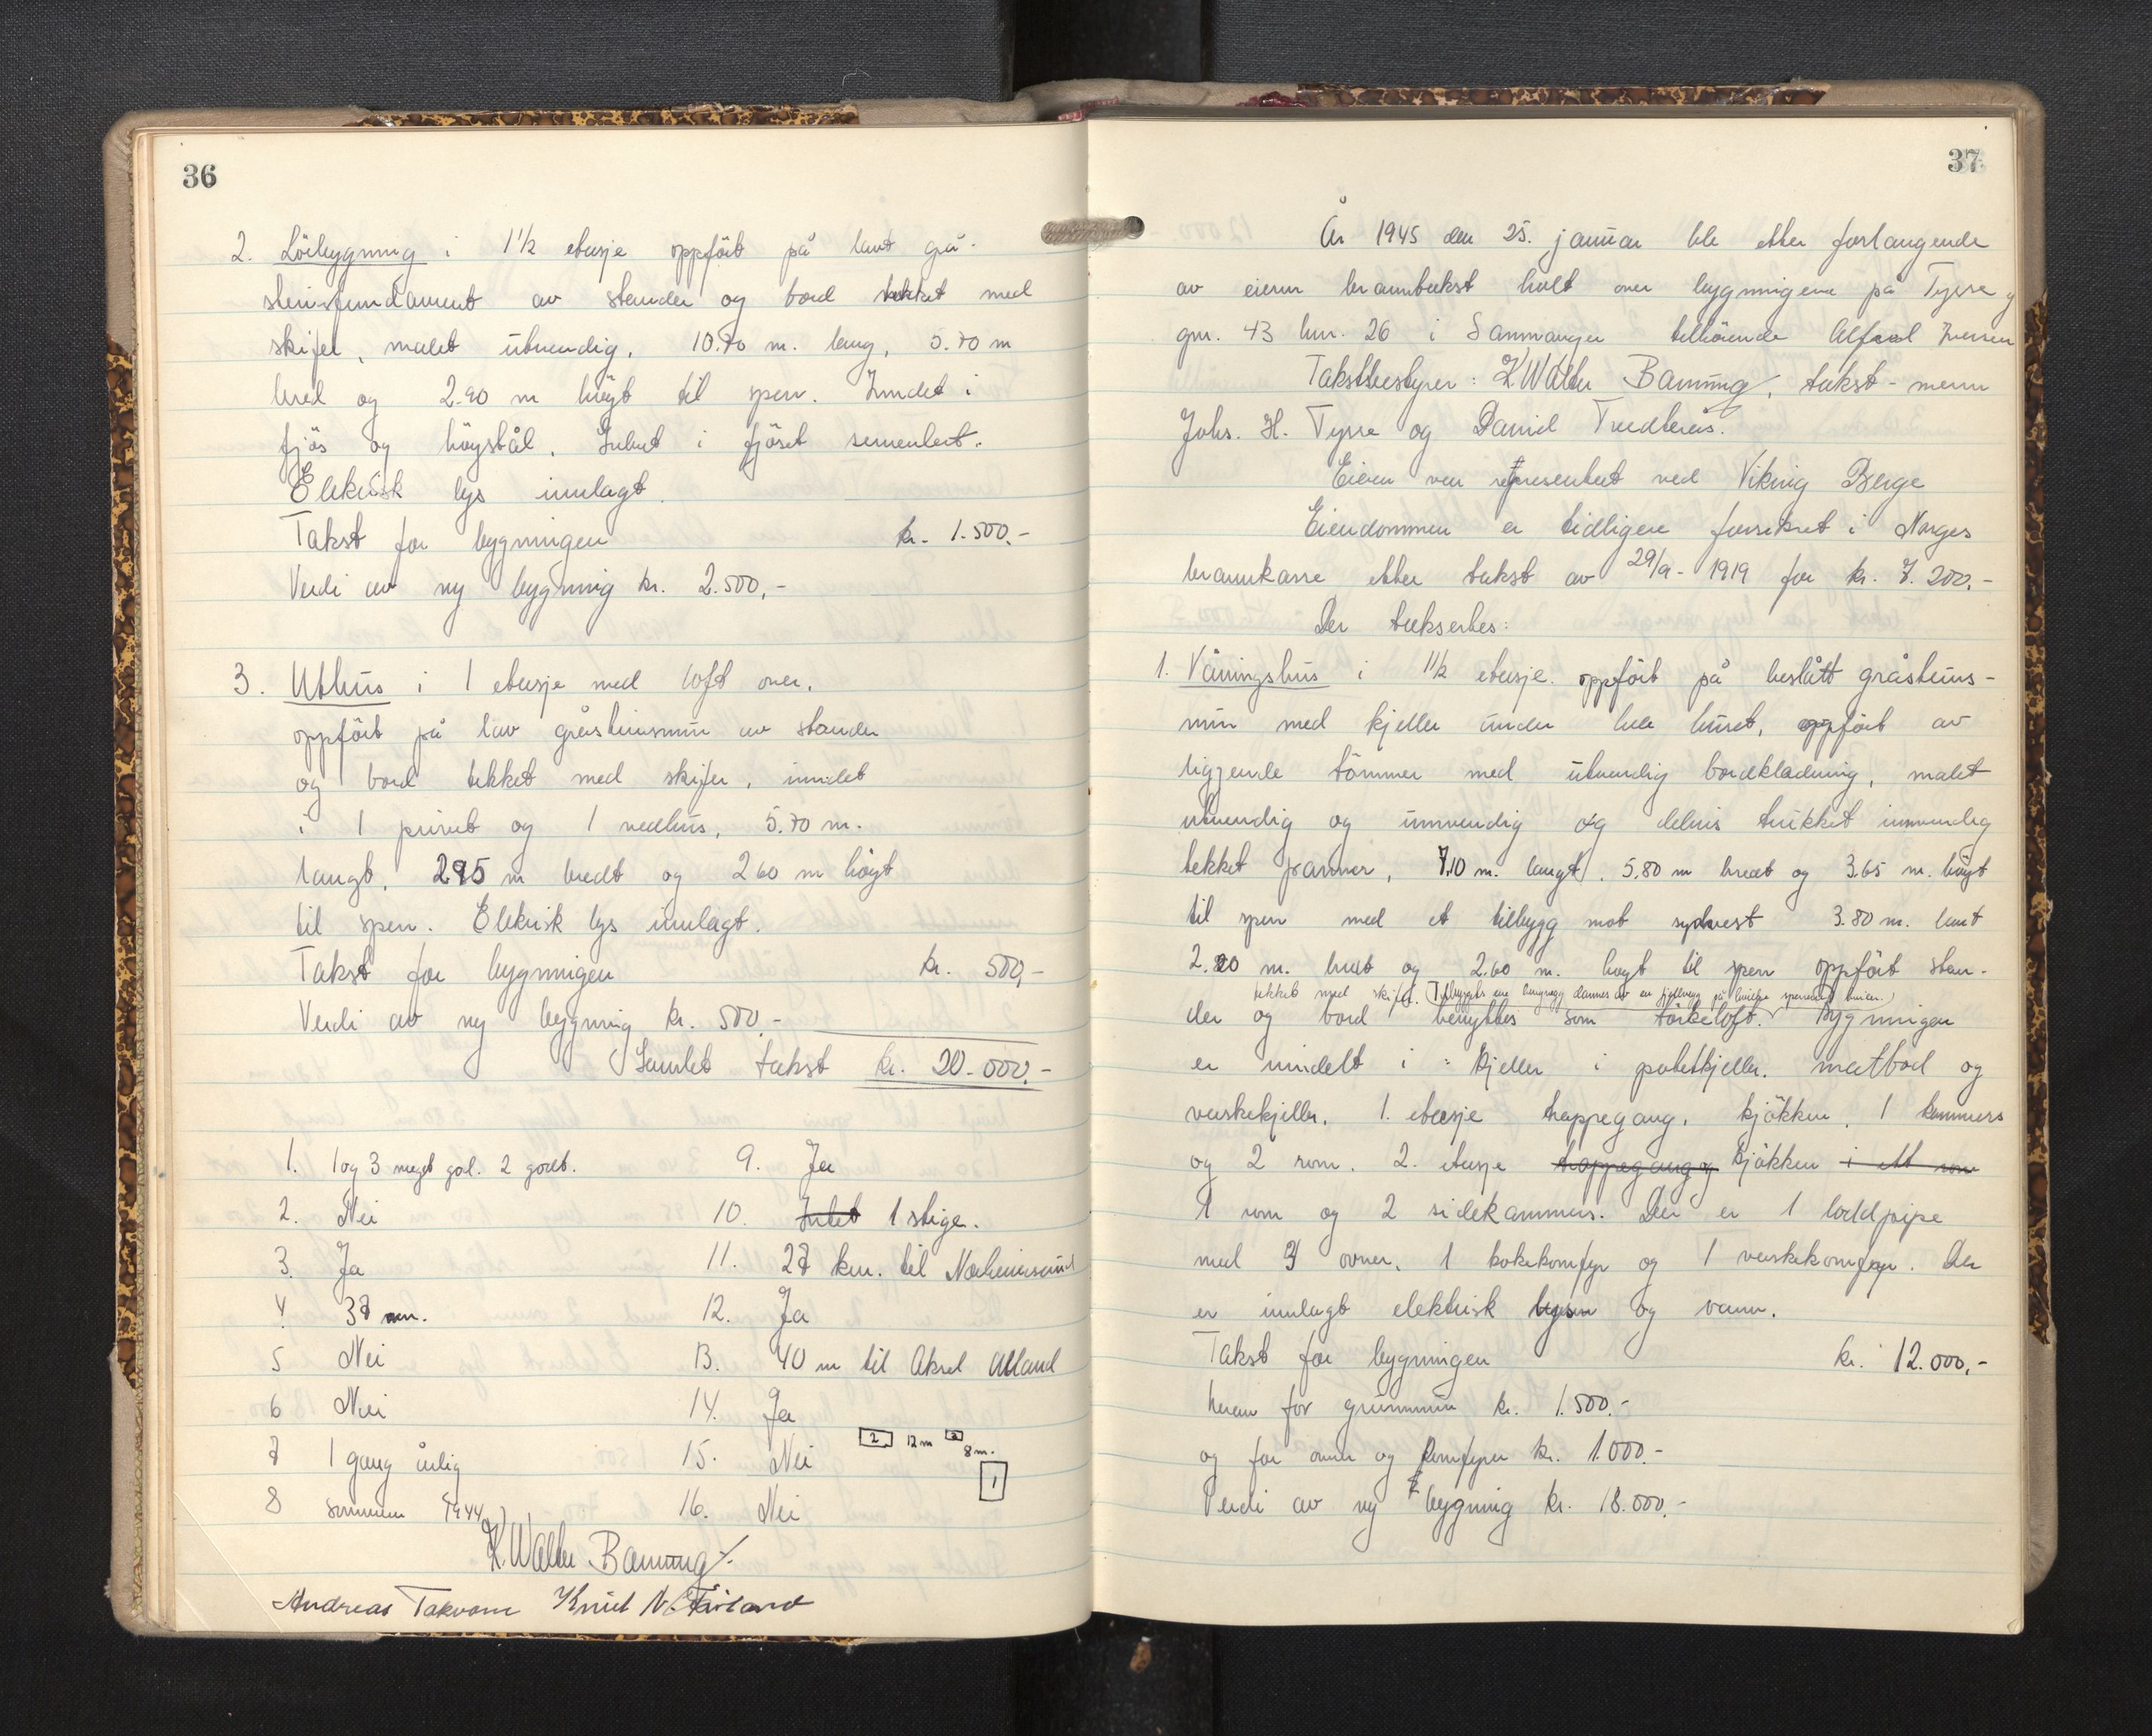 36
2. Löebygning i 1 1/2 etasje oppfört på lavt grå-
steinsfundament av stender og bord tekket med
skifer, malet utvendig. 10.70 m. lang, 5.70 m
bred og 2.90 m höyt til sperr. Inndet i
fjös og höystål. Gulvet i fjöset sementert.
Elektrisk lys innlagt.
Takst for bygningen kr. 1.500.-
Verdi av ny bygning kr. 2.500,-
3. Uthus i 1 etasje med loft over,
oppfört på lav gråsteinsmur av stender
og bord tekket med skifer, inndet
i 1 privet og 1 vedhus, 5.70 m.
langt, 295 m bredt og 260 m höyt
til sperr. Elekrisk lys innlagt.
Takst for bygningen kr. 500,-
Verdi av ny bygning kr. 500.-
Samlet takst kr. 20.000.-
1. 1 og 3 meget god. 2 godt. 9. Ja
2. Nei 10. Intet 1 stige.
3. Ja 11. 27 km. til Norheimsund
4. 37 m. 12. Ja
5 Nei 13. 40 m til Aksel Aaland
6 Nei 14. Ja
7 1 gang årlig 15. Nei
2 12 m 3 8 m. 1
8 sommeren 1944 16. Nei
K. Walter Banung
Andreas Takvam Knut N.
37
År 1945 den 25. januar ble etter forlangende
av eieren branntakst holt over bygningene på Tysse
gnr. 43 bnr. 26 i Samnanger tilhörende Alfred Iversen
Takstbestyrer: K. Walter Banung, takst-menn
Johs. H. Tysse og Daniel Tvedterås.
Eieren var representert ved Viking Berge
Eiendommen er tidligere forsikret i Norges
brannkasse etter takst av 29/9-1919 for kr. 7.200.-
Der takseres:
1. Våningshus i 1 1/2 etasje. oppfört på beslått gråsteins-
mur med kjeller under hele huset, oppfört av
liggende tömmer med utvendig bordkledning, malet
utvendig og innvendig og delvis trukket innvendig
tekket panner, 7.10 m. langt, 5.80 m bredt og 3.65 m. höyt
til sperr med et tilbygg mot sydvest 3.80 m. lant
2.20 m. bredt og 2.60 m. hoyt til sperr oppfört sten-
tekket med skifer. (Tilbyggets ene langvegg dannes av en fjellvegg på hvilke sperrene hviler.)
der og bord benyttes som törkeloft. Bygningen
er inndelt i: kjeller i potetkjeller. matbod og
vaskekjeller. 1. etasje trappegang, kjökken, 1 kammers
og 2 rom. 2. etasje trappegang og kjökken i ett rom
1 rom og 2 sidekammers. Der er 1 loddpipe
med 3 ovner, 1 kokekomfyr og 1 vaskekomfyr. Der
er innlagt elektrisk lys og vann.
Takst for bygningen kr. 12.000,-
herav for grunnmur kr. 1.500.-
og for ovner og komfyrer kr. 1.000.-
Verdi av ny bygning kr. 18.000.-